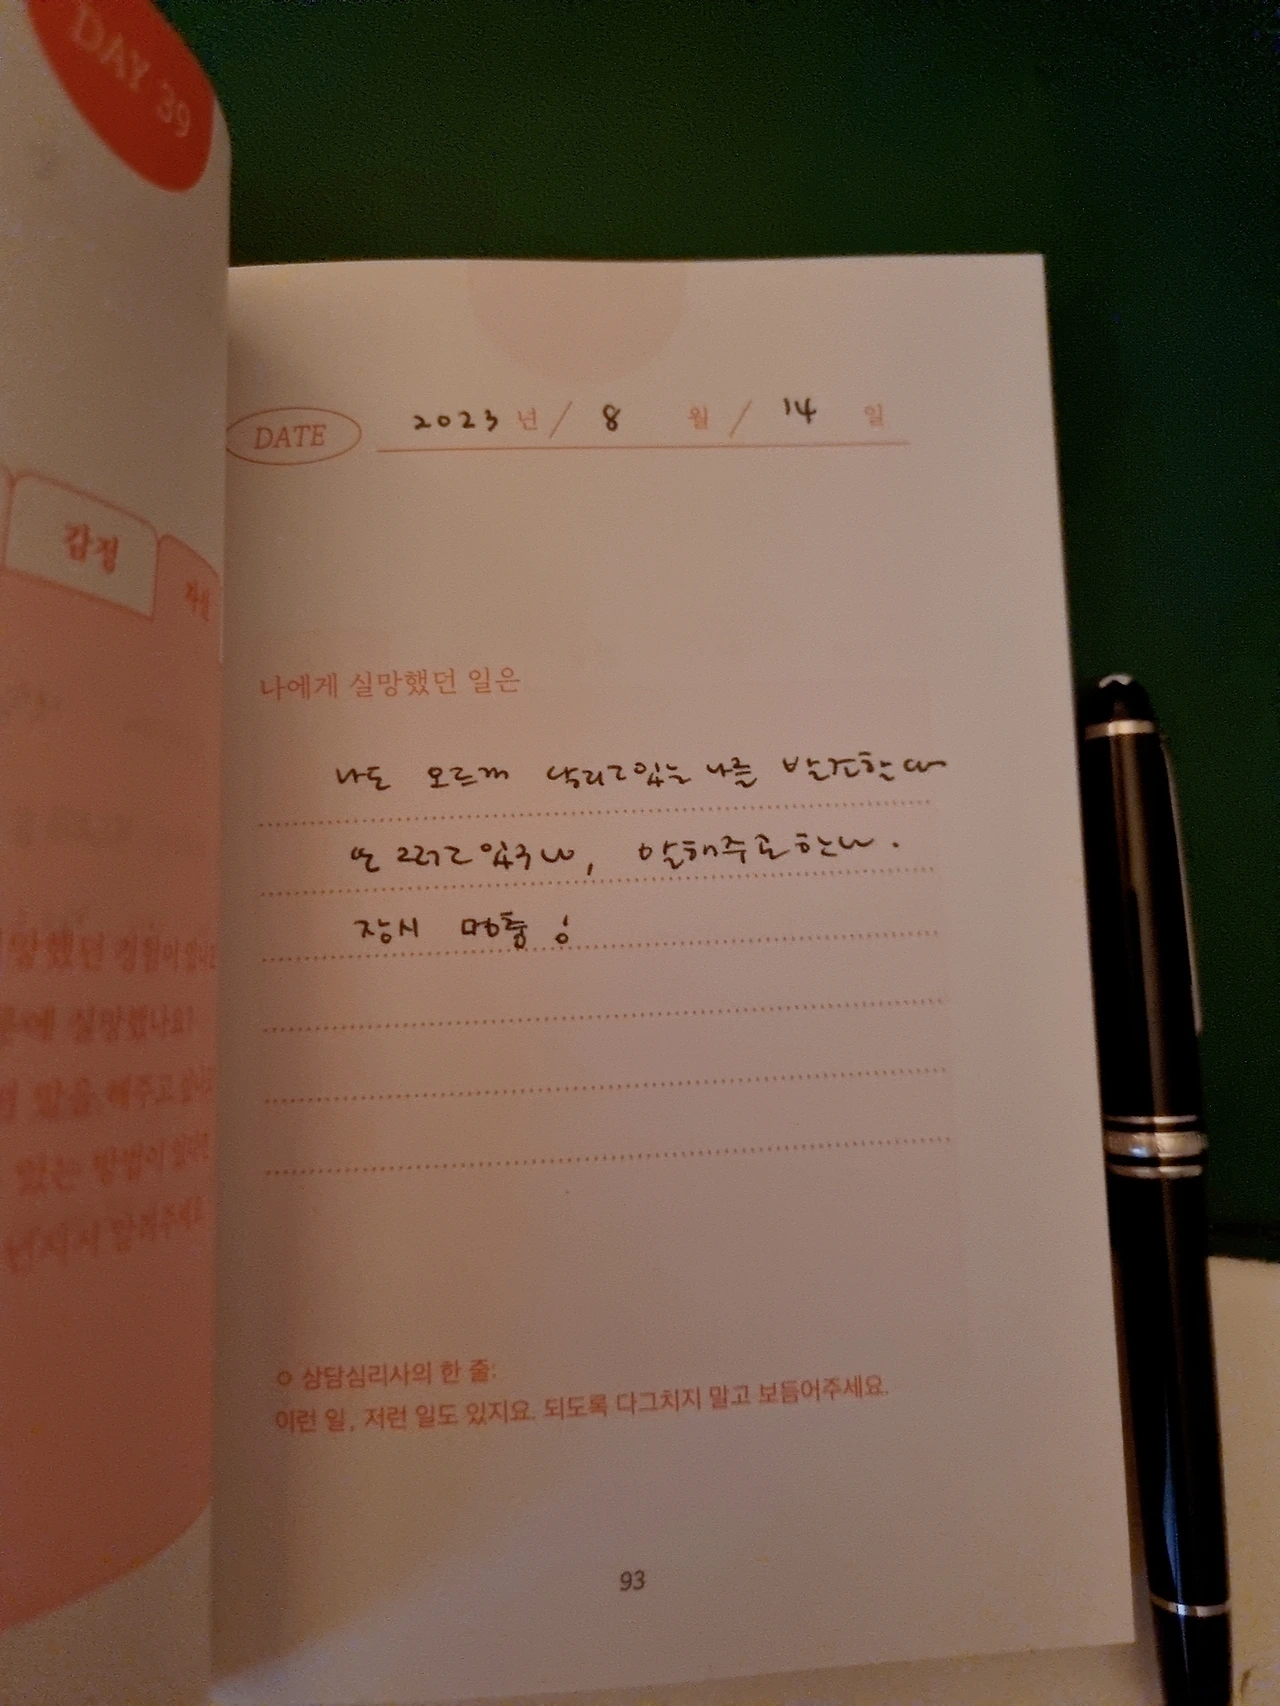 DAY 39
감정
DATE 2023 년 / 8 월 / 14 일
나에게 실망했던 일은
나도 모르게 낙리고있는 나를 발견한다
또 그러고 있구나, 알해주고한다.
잠시 멈춤!
망했던 경험이 있나요
실망했나요?
말을 해주고 싶나요
있는 방법이 있다면
○ 상담심리사의 한 줄:
이런 일, 저런 일도 있지요. 되도록 다그치지 말고 보듬어주세요.
93